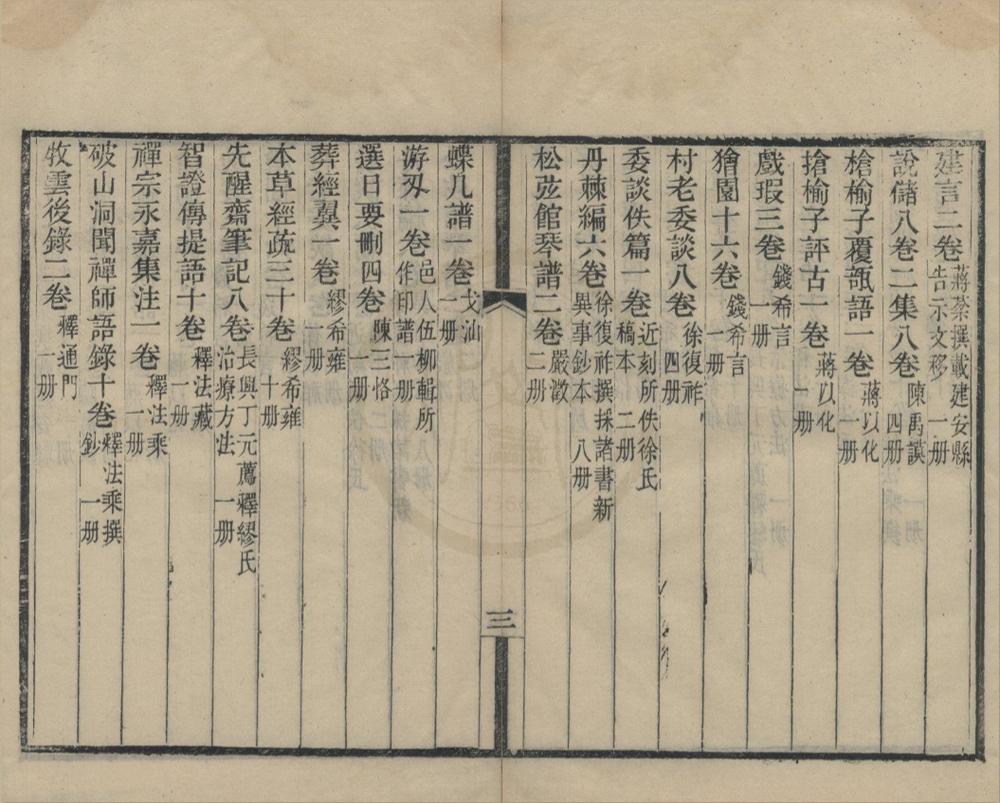 建言二卷 蔣棻撰載建安縣告示文移 一册
說儲八卷二集八卷 陳禹謨 四册
槍榆子覆瓿語一卷 蔣以化 一册
搶榆子評古一卷 蔣以化 一册
戲瑕三卷 錢希言 一册
獪園十六卷 錢希言 一册
村老委談八卷 徐復祚 四册
委談佚篇一卷 近刻所佚徐氏稿本 二册
丹棘編六卷 徐復祚撰採諸書新異事鈔本 八册
松弦館琴譜二卷 嚴澂 二册
三
蝶几譜一卷 戈汕 一册
游刃一卷 邑人伍柳輯所作印譜 一册
選日要刪四卷 陳三恪 一册
葬經翼一卷 繆希雍 一册
本草經疏三十卷 繆希雍 十册
先醒齋筆記八卷 長興丁元薦釋繆氏治療方法 一册
智證傳提語十卷 釋法藏 一册
禪宗永嘉集注一卷 釋法乘 一册
破山洞聞禪師語錄十卷 釋法乘撰鈔 一册
牧雲後錄二卷 釋通門 一册